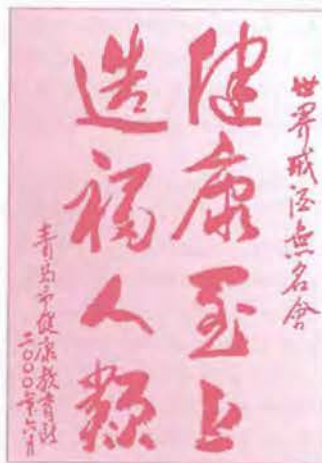 世界戒酒無名会
健康至上
造福人類
青島市健康教育所
二〇〇〇年六月